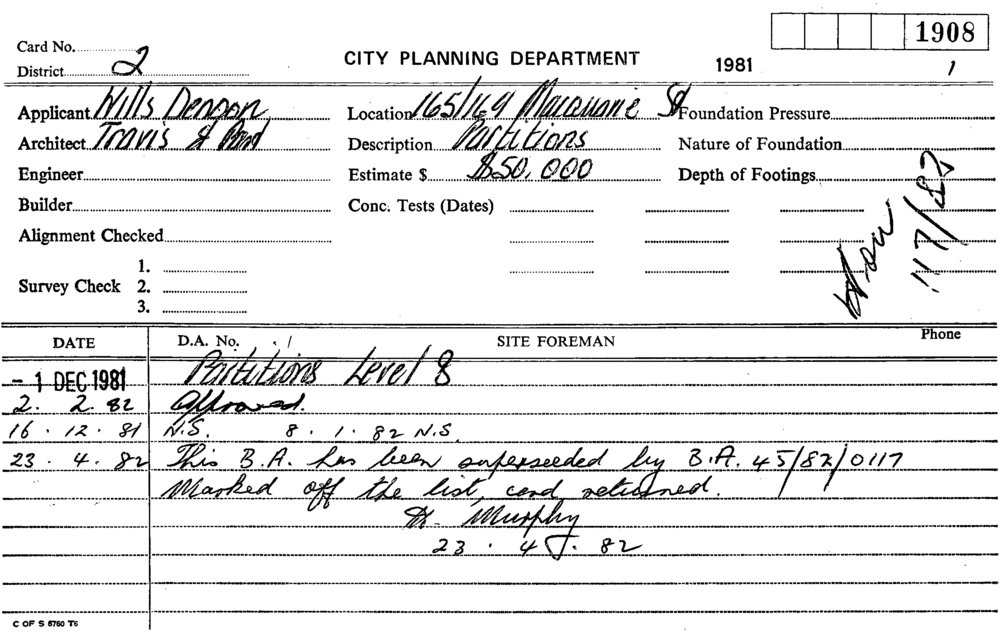 1908
Card No.
District 2
CITY PLANNING DEPARTMENT
1981
1
Applicant Wills Location 165/169 Macquarie St Foundation Pressure
Architect Travis & Description Partitions Nature of Foundation
Engineer Estimate $ $50,000 Depth of Footings
Builder Conc. Tests (Dates)
Alignment Checked
Survey Check 1.
2.
3.
117/82
DATE D.A. No. SITE FOREMAN Phone
- 1 DEC 1981 Partitions Level 8
2. 2. 82 Approved.
16 . 12 . 81 N.S. 8 . 1 . 82 N.S.
23 . 4 . 82 This B.A. has been superseeded by B.A. 45/82/0117
Marked off the list, card returned.
Murphy
23 . 4 . 82
C OF S 6760 T6